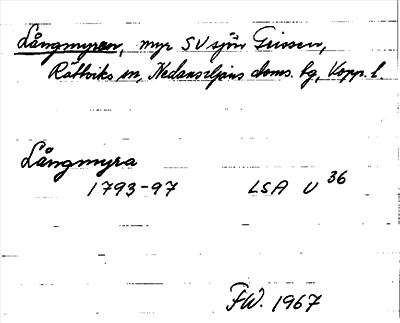 Långmyren, myr SV sjön Grissen,
Rättviks sn, Nedansiljans doms. hg, Kopp. l.
Långmyra
1793-97 LSA U 36
FW. 1967